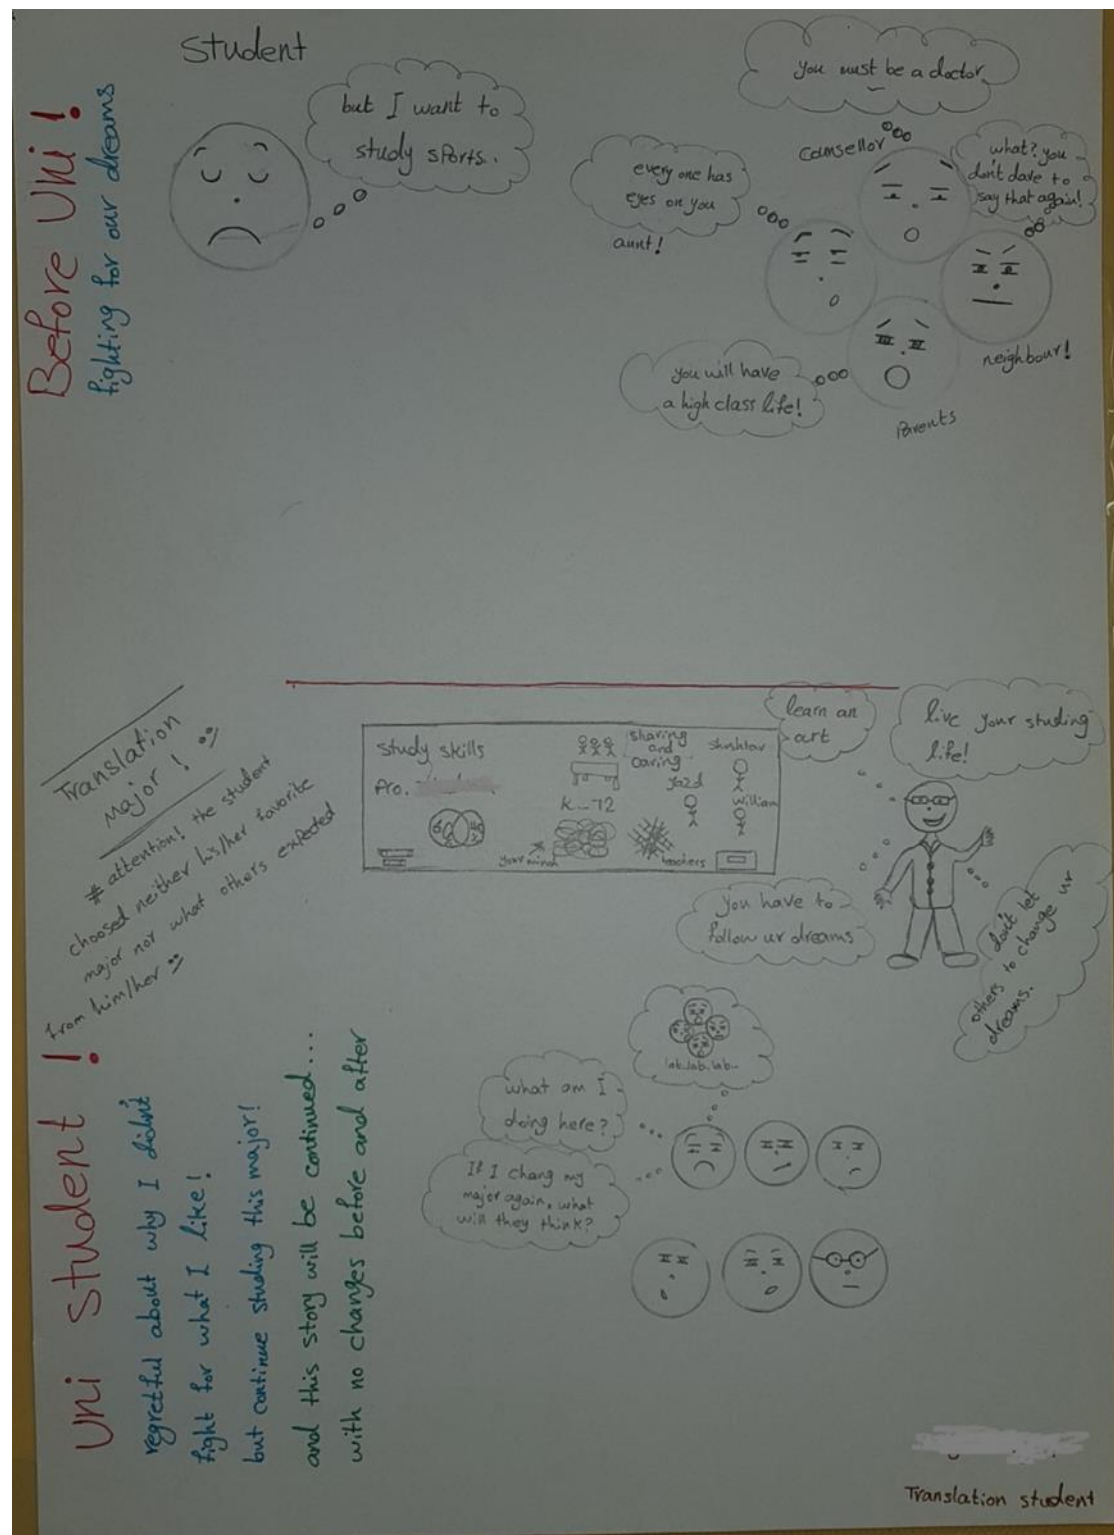 Before Uni!
fighting for our dreams
Student
but I want to
study sports..
you must be a doctor
counsellor
what? you
don't dare to
say that again!
every one has
eyes on you
aunt!
neighbour!
you will have
a high class life!
Parents
Translation
Major!
# attention! the student
choosed neither his/her favorite
major nor what others expected
from him/her
study skills
Pro.
sharing
and
caring
shushtar
yazd
William
K-12
your mind
teachers
learn an
art
live your studing
life!
you have to
follow ur dreams
don't let
others to change ur
dreams.
Uni student!
regretful about why I didn't
fight for what I like!
but continue studing this major!
and this story will be continued...
with no changes before and after
what am I
doing here?
If I chang my
major again, what
will they think?
Translation student